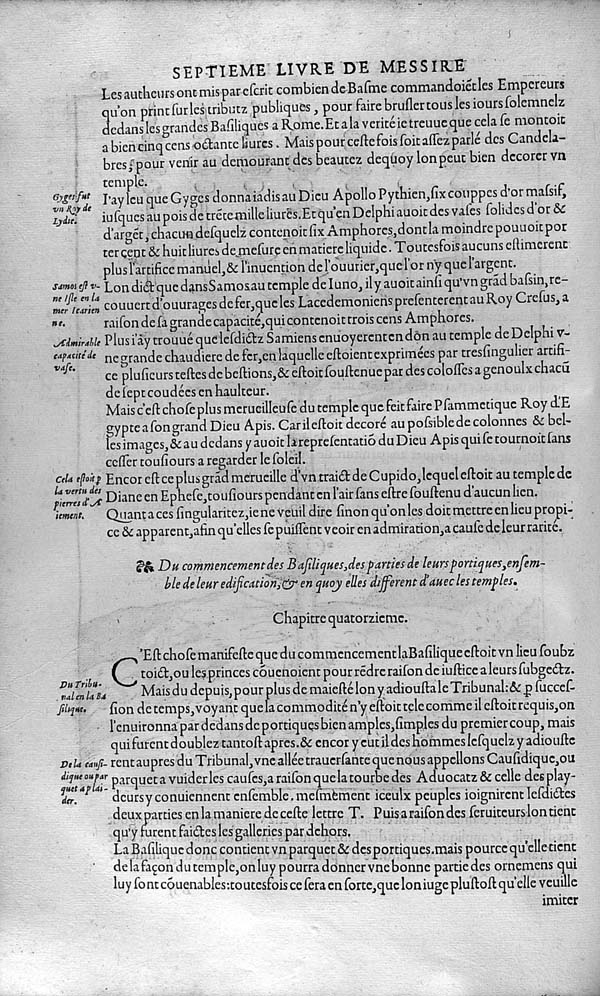 SEPTIEME LIVRE DE MESSIRE
Les autheurs ont mis par escrit combien de Basme commandoiẽt les Empereurs
qu'on print sur les tributz publiques, pour faire brusler tous les iours solemnelz
dedans les grandes Basiliques a Rome. Et a la verité ie treuue que cela se montoit
a bien cinq cens octante liures. Mais pour ceste fois soit assez parlé des Candela-
bres, pour venir au demourant des beautez dequoy lon peut bien decorer vn
temple.
Gyges fut
vn Roy de
Lydie.
I'ay leu que Gyges donna iadis au Dieu Apollo Pythien, six couppes d'or massif,
iusques au pois de trẽte mille liures. Et qu'en Delphi auoit des vases solides d'or &
d'argẽt, chacun desquelz contenoit six Amphores, dont la moindre pouuoit por
ter cent & huit liures de mesure en matiere liquide. Toutesfois aucuns estimerent
plus l'artifice manuel, & l'inuention de l'ouurier, que l'or ny que l'argent.
Samos est v-
ne Isle en la
mer Icarien
ne.
Lon dict que dans Samos au temple de Iuno, il y auoit ainsi qu'vn grãd bassin, re-
couuert d'ouurages de fer, que les Lacedemoniens presenterent au Roy Cresus, a
raison de sa grande capacité, qui contenoit trois cens Amphores.
Admirable
capacité de
vase.
Plus i'ay trouué que lesdictz Samiens enuoyerent en dõn au temple de Delphi v-
ne grande chaudiere de fer, en laquelle estoient exprimées par tressingulier artifi-
ce plusieurs testes de bestions, & estoit soustenue par des colosses a genoulx chacũ
de sept coudées en haulteur.
Mais c'est chose plus merueilleuse du temple que feit faire Psammetique Roy d'E
gypte a son grand Dieu Apis. Car il estoit decoré au possible de colonnes & bel-
les images, & au dedans y auoit la representatiõ du Dieu Apis qui se tournoit sans
cesser tousiours a regarder le soleil.
Cela estoit p
la vertu des
pierres d'A
iement.
Encor est ce plus grãd merueille d'vn traict de Cupido, lequel estoit au temple de
Diane en Ephese, tousiours pendant en l'air sans estre soustenu d'aucun lien.
Quant a ces singularitez, ie ne veuil dire sinon qu'on les doit mettre en lieu propi-
ce & apparent, afin qu'elles se puissent veoir en admiration, a cause de leur rarité.
Du commencement des Basiliques, des parties de leurs portiques, ensem-
ble de leur edification, & en quoy elles different d'auec les temples.
Chapitre quatorzieme.
C'Est chose manifeste que du commencement la Basilique estoit vn lieu soubz
toict, ou les princes cõuenoient pour rẽdre raison de iustice a leurs subgectz.
Du Tribu-
nal en la Ba
silique.
Mais du depuis, pour plus de maiesté lon y adiousta le Tribunal: & p succes-
sion de temps, voyant que la commodité n'y estoit tele comme il estoit requis, on
l'enuironna par dedans de portiques bien amples, simples du premier coup, mais
qui furent doublez tantost apres. & encor y eut il des hommes lesquelz y adiouste
De la causi-
dique ou par
quet a plai-
der.
rent aupres du Tribunal, vne allée trauersante que nous appellons Causidique, ou
parquet a vuider les causes, a raison que la tourbe des Aduocatz & celle des play-
deurs y conuiennent ensemble. mesmement iceulx peuples ioignirent lesdictes
deux parties en la maniere de ceste lettre T. Puis a raison des seruiteurs lon tient
qu'y furent faictes les galleries par dehors.
La Basilique donc contient vn parquet & des portiques. mais pource qu'elle tient
de la façon du temple, on luy pourra donner vne bonne partie des ornemens qui
luy sont cõuenables: toutesfois ce sera en sorte, que lon iuge plustost qu'elle veuille
imiter